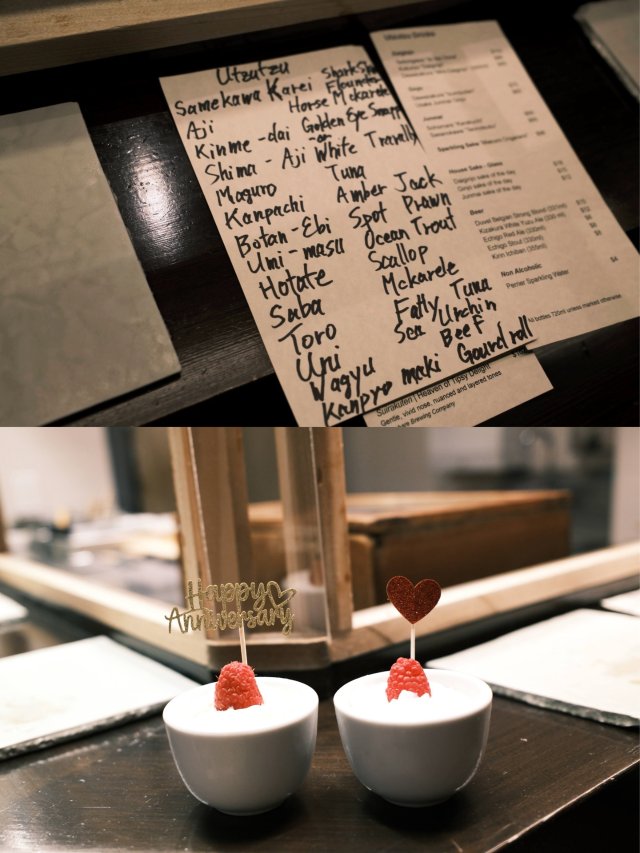 Utzutzu
Samekawa Karei Shark Skin Flounder
Aji Horse Mckarele
Kinme-dai Golden Eye Snapp
Shima-Aji White Travally
Maguro Tuna
Kanpachi Amber Jack
Botan-Ebi Spot Prawn
Umi-masu Ocean Trout
Hotate Scallop
Saba Mckarele
Toro Fatty Tuna
Uni Sea Urchin
Wagyu Beef
Kanpyo maki Gourd roll
Sparkling Sake
House Sake - Glass
Daiginjo sake of the day
Ginjo sake of the day
Junmai sake of the day
Beer
Duvel Belgian Strong Blond
Kizakura White Yuzu Ale (330 ml)
Echigo Red Ale
Echigo Stout
Kirin Ichiban
Non Alcoholic
Perrier Sparkling Water $4
All bottles 720ml unless marked otherwise
Suirakuten | Heaven of Tipsy Delight
Gentle, vivid nose, nuanced and layered tones
Brewing Company
Happy
Anniversary